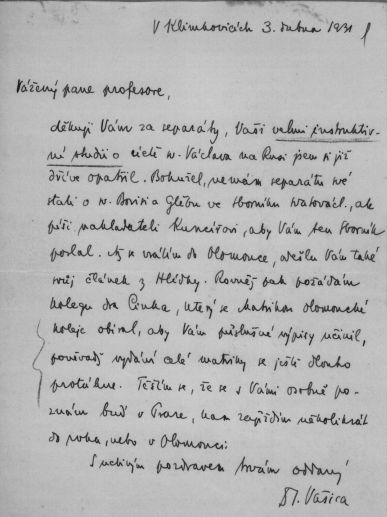 V Klimkovicích 3. dubna 1931
Vážený pane profesore,
děkuji Vám za separáty, Vaši velmi instruktiv-
ní studii o cietě sv. Václava na Rusi jsem si již
dříve opatřil. Bohužel, nemám separátu své
stati o sv. Borisi a Glěbu ve Sborníku svatovácl., ale
píši nakladateli Kuncířovi, aby Vám ten Sborník
poslal. Až se vrátím do Olomouce, pošlu Vám také
svůj článek z Hlídky. Rovněž pak požádám
kolegu dra Cinka, který se Matrikou Olomoucké
koleje obíral, aby Vám příslušné výpisy učinil,
poněvadž vydání celé matriky se ještě dlouho
protáhne. Těším se, že se s Vámi osobně po-
znám buď v Praze, kam zajíždím několikrát
do roka, nebo v Olomouci.
S uctivým pozdravem Vám oddaný
Dr. J. Vašica